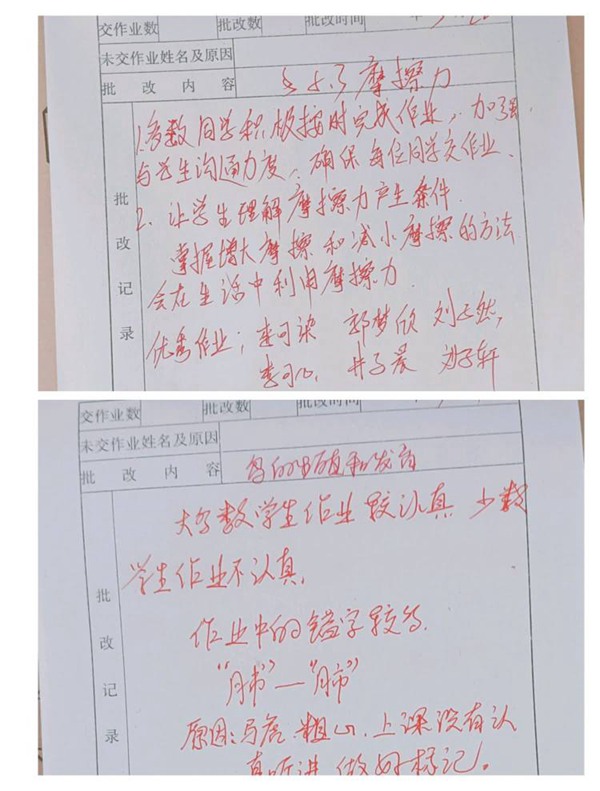 交作业数 批改数 批改时间 年
未交作业姓名及原因
批改内容 §8.3摩擦力
批改记录
1.多数同学积极按时完成作业,加强
与学生沟通力度,确保每位同学交作业.
2.让学生理解摩擦力产生条件
掌握增大摩擦和减小摩擦的方法
会在生活中利用摩擦力
优秀作业:李可染 郭梦欣 刘正然,
李可心, 井子晨 孙轩
交作业数 批改数 批改时间
未交作业姓名及原因
批改内容 鸟的生殖和发育
批改记录
大多数学生作业较认真 少数
学生作业不认真.
作业中的错字较多.
“肺”—“肺”
原因:马虎、粗心,上课没有认
真听讲,做好标记。